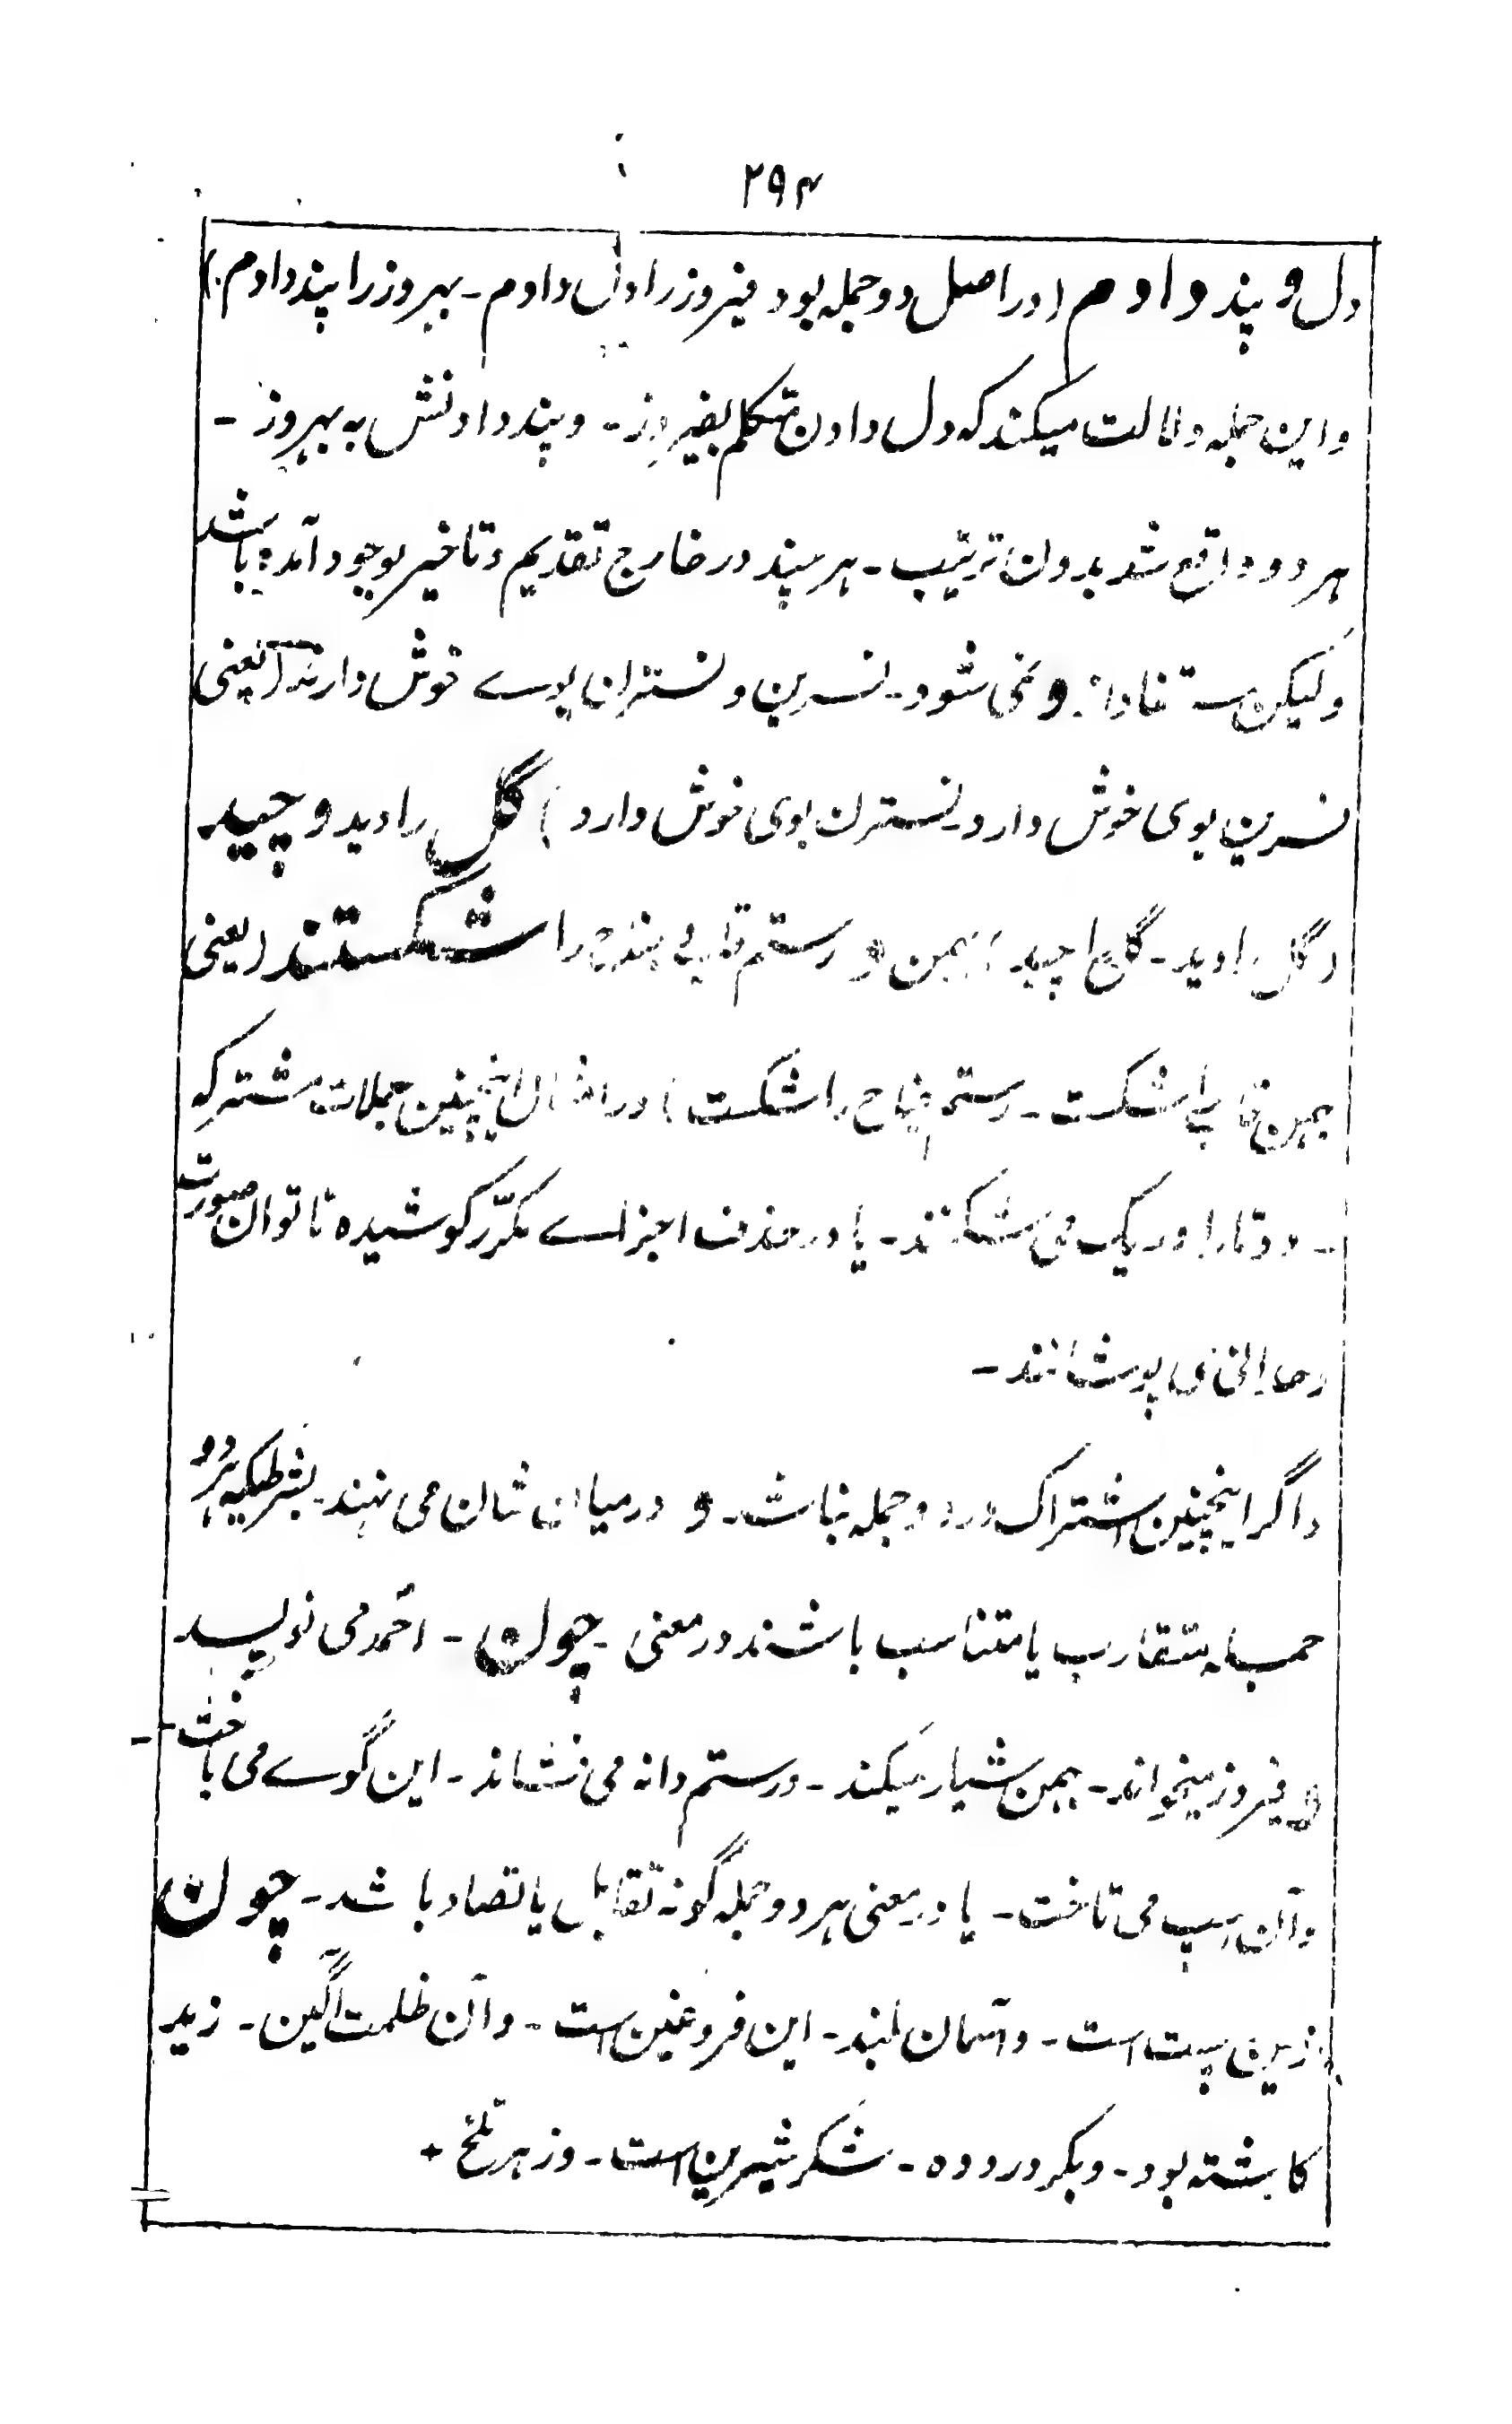 ۲۹۴
دل و پند دادم (در اصل دو جمله بود فیروز را دل دادم - بهروز را پند دادم)
و این جمله دلالت میکند که دل دادن متکلم بفیروز - و پند دادنش به بهروز -
هر دو واقع شد بدون ترتیب - هر چند در خارج تقدیم و تاخیر بوجود آمده باشد
ولیکن مستفاد از و نمی شود - نسرین و نسترن بوے خوش دارند (یعنی
نسرین بوی خوش دارد - نسترن بوی خوش دارد) گل را دید و چید
(گل را دید - گل را چید) بهمن و رستم را شکستند (یعنی
بهمن را شکست - رستم را شکست) در امثال اینچنین جملات مشترکه
دو تا را در یک می شکنند - یا در حذف اجزاے مکرّر کوشیده تا توان صورت
می پوشانند -
و اگر اینچنین اشتراک در دو جمله نباشد - و درمیان شان می نهند - بشرطیکه هر دو
جمله متقارب یا متناسب باشند در معنی - چون - احمد می نویسد
و فیروز میخواند - بهمن شیار میکند - و رستم دانه می نشاند - این گوے می باخت -
و آن اسپ می تاخت - یا در معنی هر دو جمله گونه تقابل یا تضاد باشد - چون
زمین پست است - و آسمان بلند - این فروغین است - و آن ظلمت آگین - زید
کاشته بود - و بکر دروده - شکر شیرین است - و زهر تلخ +